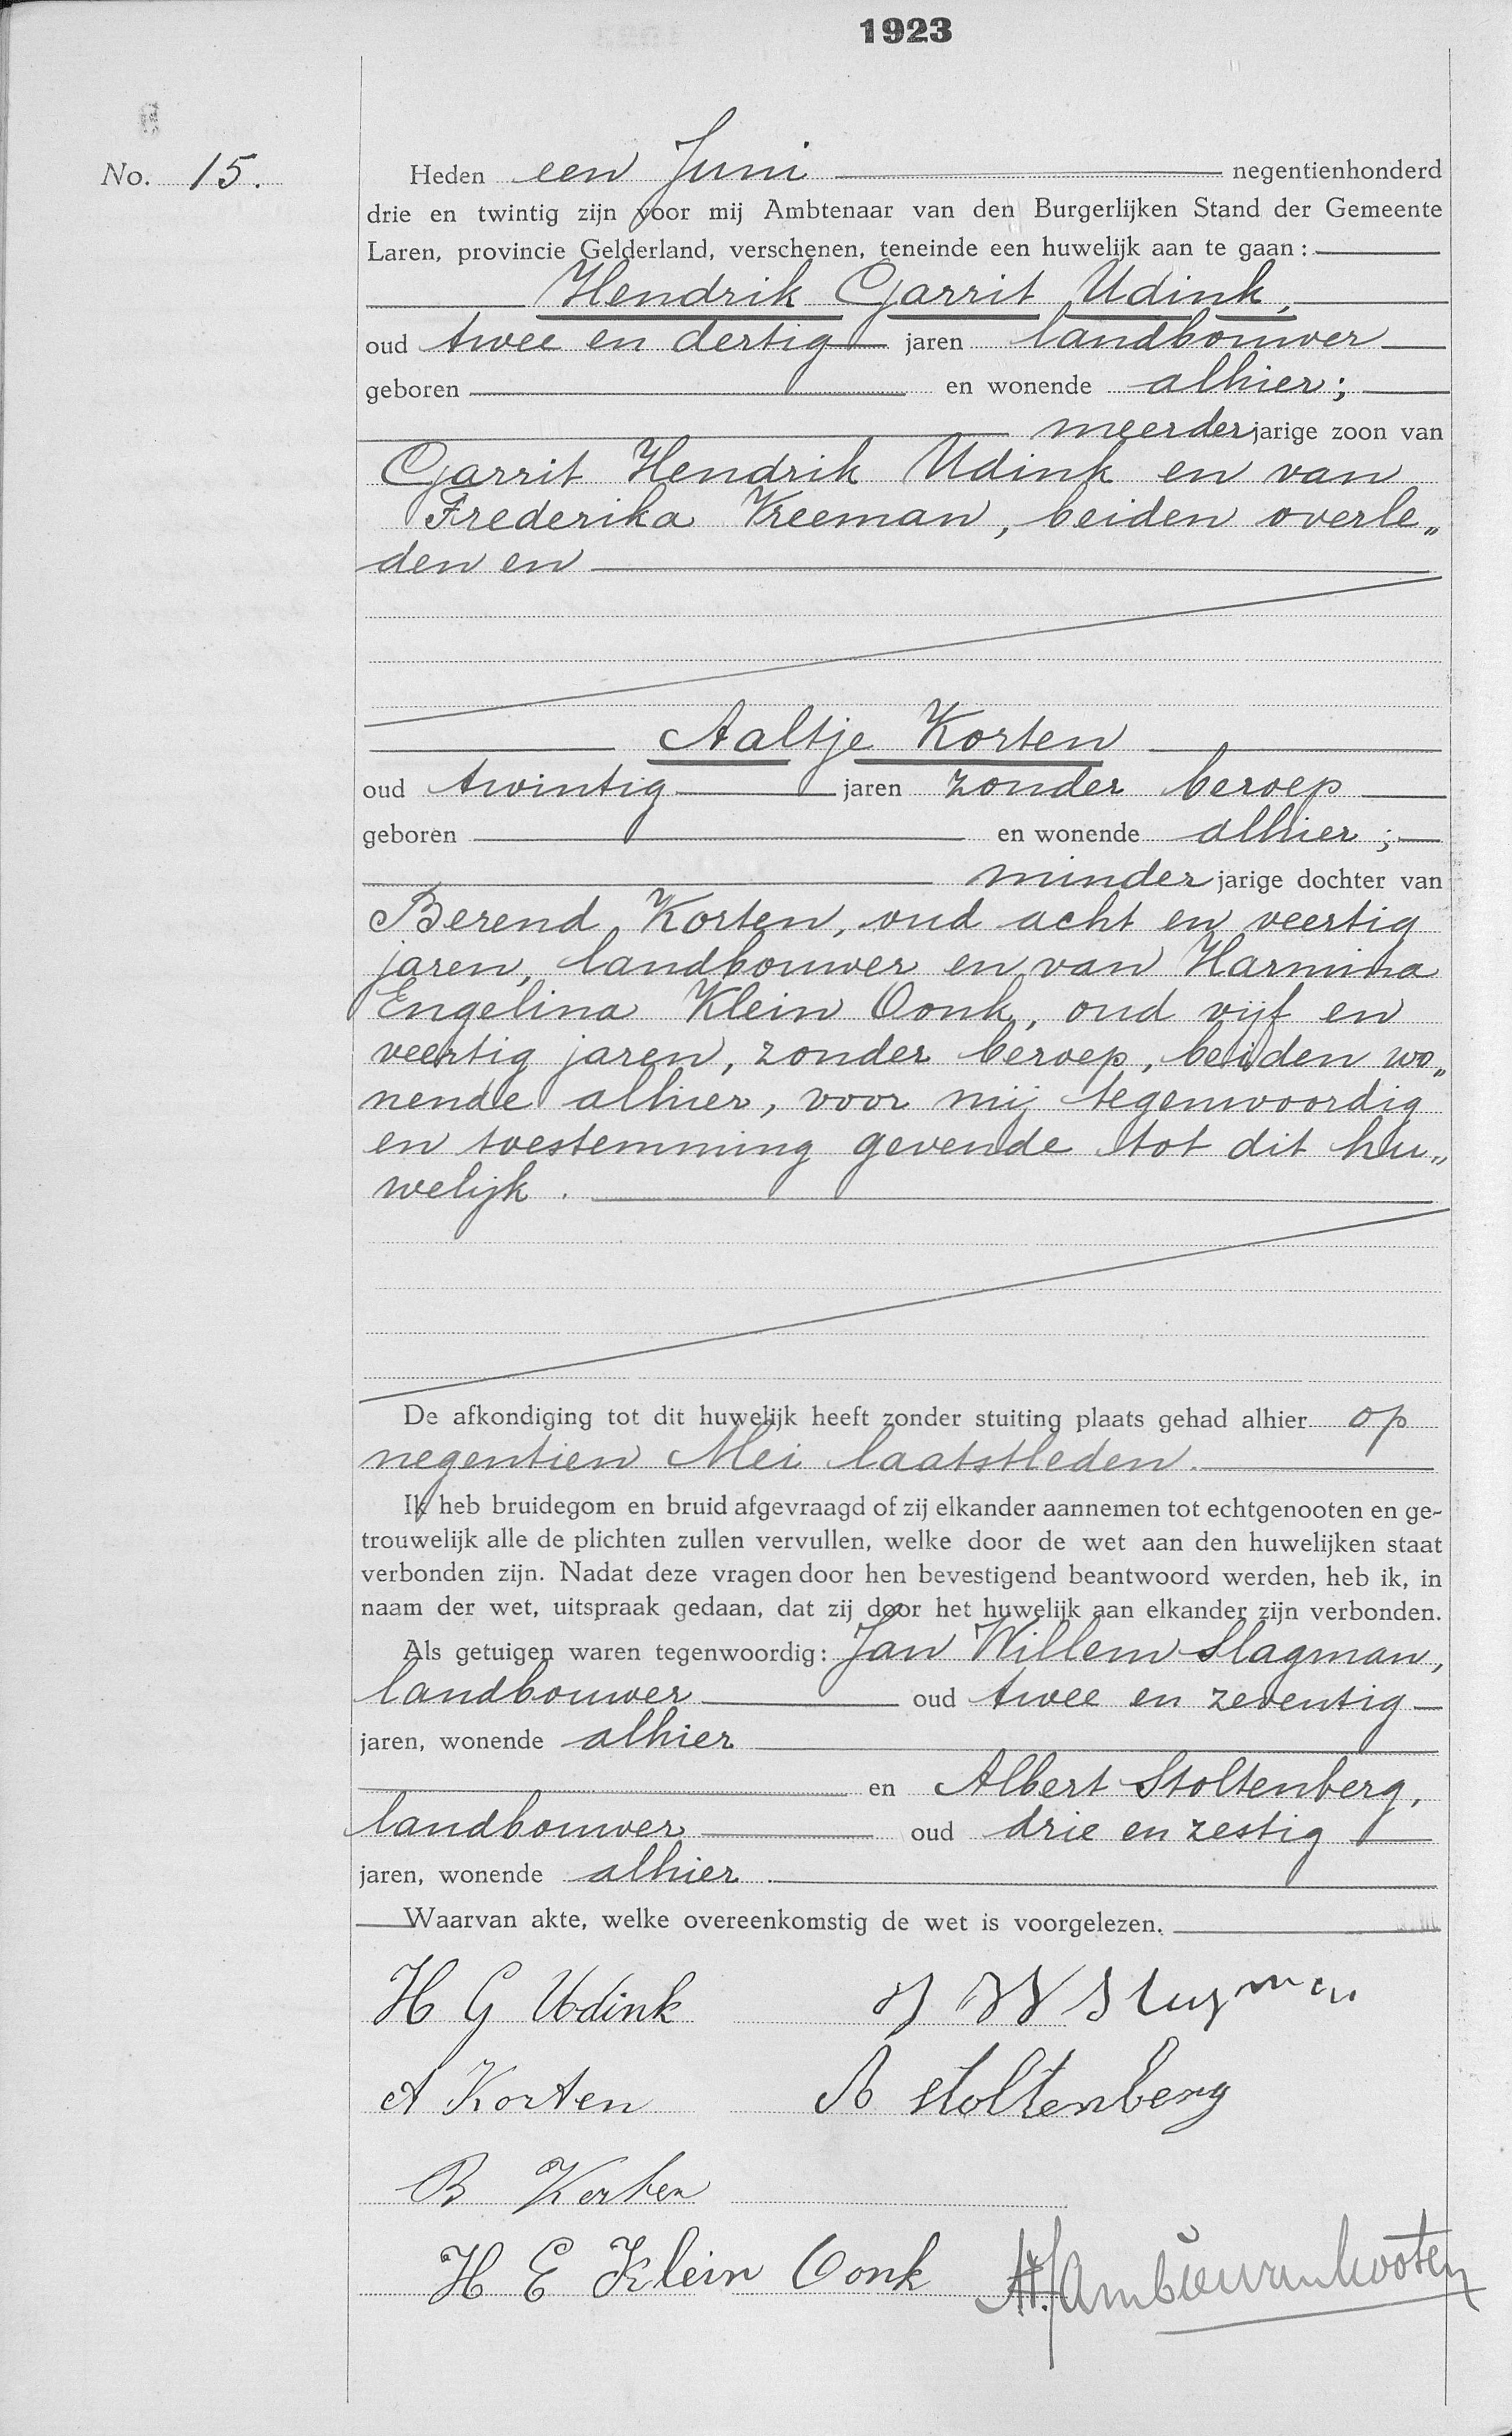 1923
No. 15.
Heden een Juni negentienhonderd
drie en twintig zijn voor mij Ambtenaar van den Burgerlijken Stand der Gemeente
Laren, provincie Gelderland, verschenen, teneinde een huwelijk aan te gaan:
Hendrik Garrit Udink,
oud twee en dertig jaren landbouwer
geboren en wonende alhier;
meerderjarige zoon van
Garrit Hendrik Udink en van
Frederika Vreeman, beiden overle„
den en
Aaltje Korten
oud twintig jaren zonder beroep
geboren en wonende alhier;
minderjarige dochter van
Berend Korten, oud acht en veertig
jaren, landbouwer en van Harmina
Engelina Klein Oonk, oud vijf en
veertig jaren, zonder beroep, beiden wo„
nende alhier, voor mij tegenwoordig
en toestemming gevende tot dit hu„
welijk.
De afkondiging tot dit huwelijk heeft zonder stuiting plaats gehad alhier op
negentien Mei laatstleden.
Ik heb bruidegom en bruid afgevraagd of zij elkander aannemen tot echtgenooten en ge-
trouwelijk alle de plichten zullen vervullen, welke door de wet aan den huwelijken staat
verbonden zijn. Nadat deze vragen door hen bevestigend beantwoord werden, heb ik, in
naam der wet, uitspraak gedaan, dat zij door het huwelijk aan elkander zijn verbonden.
Als getuigen waren tegenwoordig: Jan Willem Slagman,
landbouwer oud twee en zeventig
jaren, wonende alhier
en Albert Stoltenberg,
landbouwer oud drie en zestig
jaren, wonende alhier.
Waarvan akte, welke overeenkomstig de wet is voorgelezen.
H G Udink J W Slagman
A Korten A Stoltenberg
B Korten
H E Klein Oonk